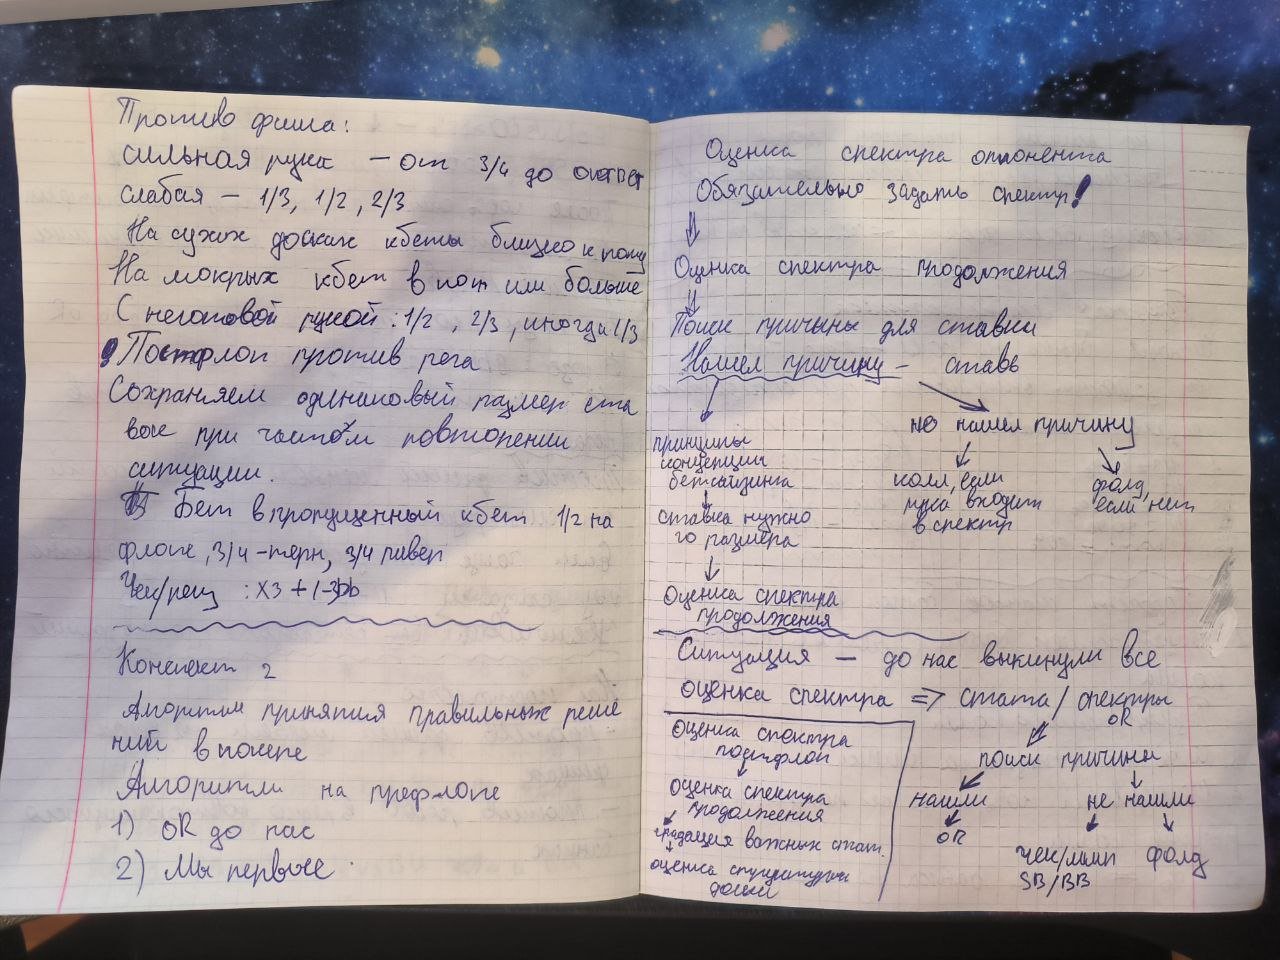 Против фиша:
сильная рука - от 3/4 до
слабая - 1/3, 1/2, 2/3
На сухих досках кбеты близко к поту
На мокрых кбет в пот или больше
С неготовой рукой: 1/2, 2/3, иногда 1/3
Постфлоп против рега
Сохраняем одинаковый размер ста
вок при частом повторении
ситуации.
Бет в пропущенный кбет 1/2 на
флопе, 3/4 - терн, 3/4 ривер
Чек/рейз : x3 +
Конспект 2
Алгоритм принятия правильных реше
ний в покере
Алгоритм на префлопе
1) OR до нас
2) Мы первые
Оценка спектра оппонента
Обязательно задать спектр!
Оценка спектра продолжения
Поиск причины для ставки
Нашел причину - ставь
не нашел причину
принципы
концепции
бетсайзинга
колл, если
рука входит
в спектр
фолд,
если нет
ставка нужно
го размера
Оценка спектра
продолжения
Ситуация - до нас выкинули все
оценка спектра => стата / спектры
OR
поиск причины
нашли
не нашли
OR
чек/лимп
SB/BB
фолд
Оценка спектра
постфлоп
оценка спектра
продолжения
градация важных стат.
оценка структуры
доски